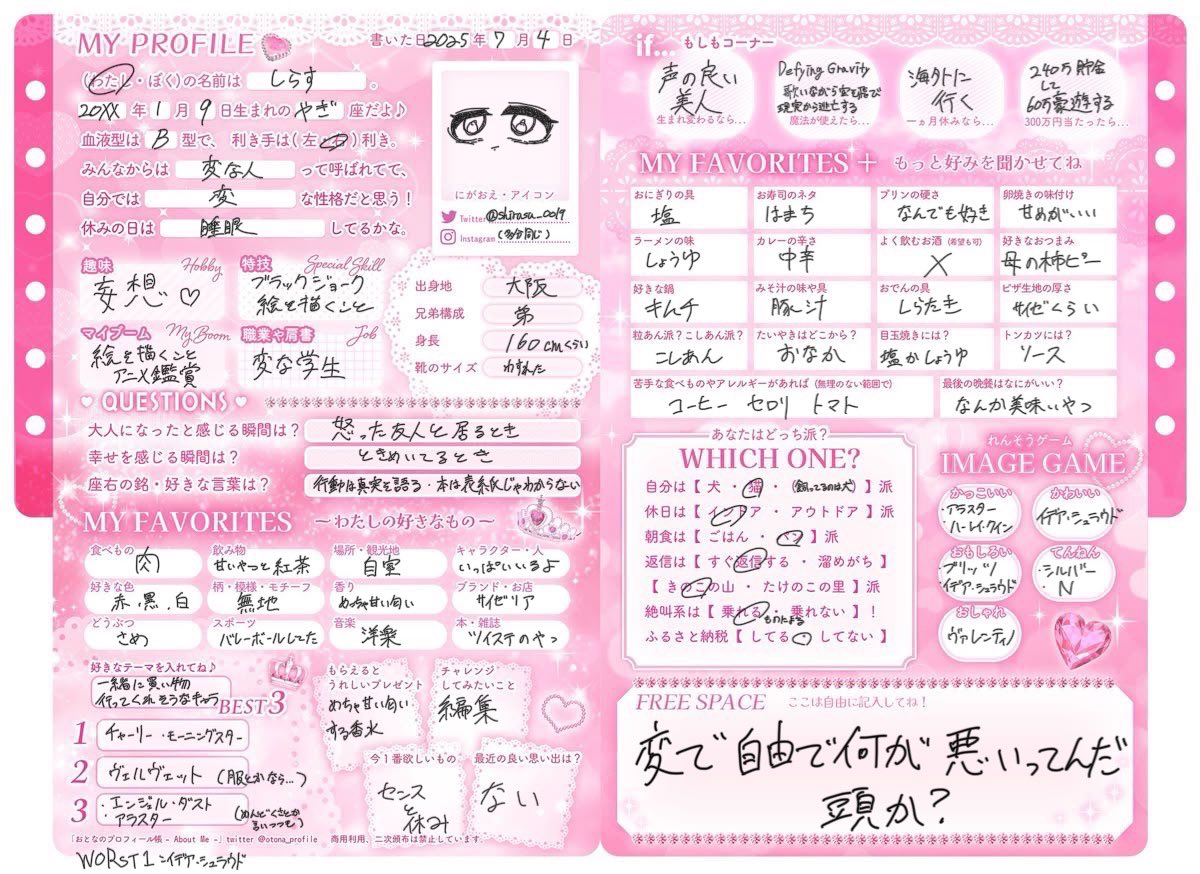 MY PROFILE
書いた日2025年7月4日
(わたし・ぼく)の名前は しらす 。
20XX年1月9日生まれの やぎ 座だよ♪
血液型は B 型で、利き手は(左・右)利き。
みんなからは 変な人 って呼ばれてて、
自分では 変 な性格だと思う!
休みの日は 睡眠 してるかな。
にがおえ・アイコン
Twitter @shirasu_0019
Instagram (多分同じ)
趣味 Hobby
妄想♡
特技 Special Skill
ブラックジョーク
絵を描くこと
マイブーム My Boom
絵を描くこと
アニメ鑑賞
職業や肩書 Job
変な学生
出身地 大阪
兄弟構成 弟
身長 160cmくらい
靴のサイズ わすれた
QUESTIONS
大人になったと感じる瞬間は? 怒った友人と居るとき
幸せを感じる瞬間は? ときめいてるとき
座右の銘・好きな言葉は? 行動は真実を語る・本は表紙じゃわからない
MY FAVORITES ~わたしの好きなもの~
食べもの 肉
飲み物 甘いやつと紅茶
場所・観光地 自室
キャラクター・人 いっぱいいるよ
好きな色 赤、黒、白
柄・模様・モチーフ 無地
香り めっちゃ甘い匂い
ブランド・お店 サイゼリア
どうぶつ さめ
スポーツ バレーボールしてた
音楽 洋楽
本・雑誌 ツイステのやつ
好きなテーマを入れてね♪
一緒に買い物
行ってくれそうなキャラ
BEST3
1 チャーリー・モーニングスター
2 ヴェルヴェット (服とかなら…)
3 ・エンジェル・ダスト
・アラスター
(めんどくさとか言いつつも)
もらえると
うれしいプレゼント
めちゃ甘い匂い
する香水
チャレンジ
してみたいこと
編集
今1番欲しいもの
センス
と
休み
最近の良い思い出は?
ない
「おとなのプロフィール帳 - About Me -」twitter @otona_profile 商用利用、二次頒布は禁止しています。
WORST1:イデア・シュラウド
if... もしもコーナー
声の良い
美人
生まれ変わるなら…
Defying Gravity
歌いながら空を飛び
現実から逃亡する
魔法が使えたら…
海外に
行く
一ヵ月休みなら…
240万貯金
して
60万豪遊する
300万円当たったら…
MY FAVORITES + もっと好みを聞かせてね
おにぎりの具 塩
お寿司のネタ はまち
プリンの硬さ なんでも好き
卵焼きの味付け 甘めがいい
ラーメンの味 しょうゆ
カレーの辛さ 中辛
よく飲むお酒(希望も可) ×
好きなおつまみ 母の柿ピー
好きな鍋 キムチ
みそ汁の味や具 豚汁
おでんの具 しらたき
ピザ生地の厚さ サイゼくらい
粒あん派?こしあん派? こしあん
たいやきはどこから? おなか
目玉焼きには? 塩かしょうゆ
トンカツには? ソース
苦手な食べものやアレルギーがあれば(無理のない範囲で)
コーヒー セロリ トマト
最後の晩餐はなにがいい?
なんか美味いやつ
あなたはどっち派?
WHICH ONE?
自分は【 犬 ・ 猫 ・ (飼ってるのは犬) 】派
休日は【 インドア ・ アウトドア 】派
朝食は【 ごはん ・ パン 】派
返信は【 すぐ返信する ・ 溜めがち 】
【 きのこの山 ・ たけのこの里 】派
絶叫系は【 乗れる ・ 乗れない 】!
ものによる
ふるさと納税【 してる ・ してない 】
れんそうゲーム
IMAGE GAME
かっこいい
・アラスター
・ハーレイ・クイン
かわいい
イデア・シュラウド
おもしろい
・ブリッツ
・イデア・シュラウド
てんねん
・シルバー
・N
おしゃれ
ヴァレンティノ
FREE SPACE ここは自由に記入してね!
変で自由で何が悪いってんだ
頭か?